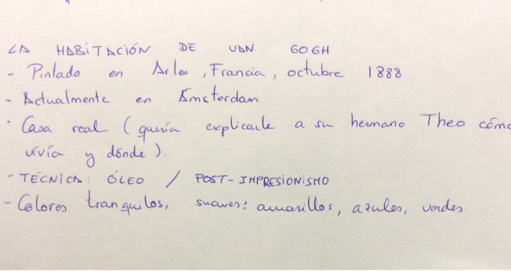 LA HABITACIÓN DE VAN GOGH
- Pintado en Arles, Francia, octubre 1888
- Actualmente en Ámsterdam
· Casa real (quería explicarle a su hermano Theo cómo
vivía y dónde).
- TÉCNICA: ÓLEO / POST-IMPRESIONISMO
- Colores tranquilos, suaves: amarillos, azules, verdes.